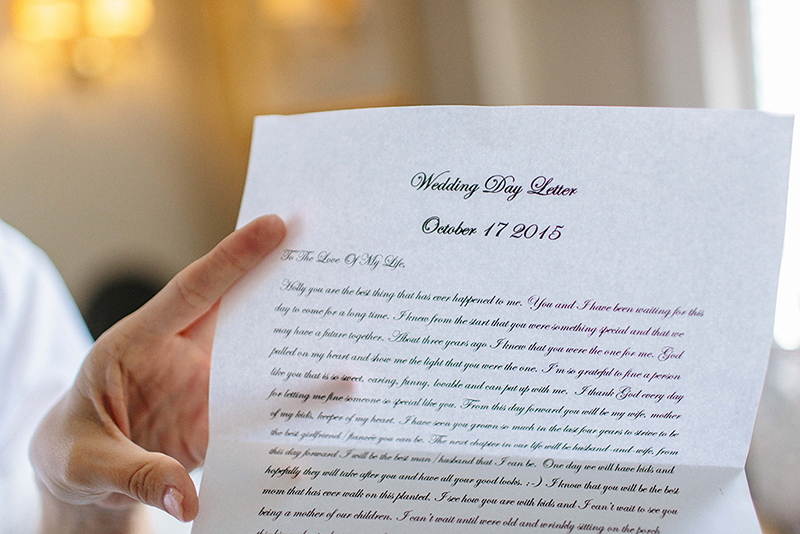 Wedding Day Letter
October 17 2015
To The Love Of My Life,
Holly you are the best thing that has ever happened to me. You and I have been waiting for this
day to come for a long time. I knew from the start that you were something special and that we
may have a future together. About three years ago I knew that you were the one for me. God
pulled on my heart and show me the light that you were the one. I'm so grateful to fine a person
like you that is so sweet, caring, funny, lovable and can put up with me. I thank God every day
for letting me fine someone so special like you. From this day forward you will be my wife, mother
of my kids, keeper of my heart. I have seen you grown so much in the last four years to strive to be
the best girlfriend/fiancée you can be. The next chapter in our life will be husband-and-wife, from
this day forward I will be the best man/husband that I can be. One day we will have kids and
hopefully they will take after you and have all your good looks. ;-) I know that you will be the best
mom that has ever walk on this planted. I see how you are with kids and I can't wait to see you
being a mother of our children. I can't wait until were old and wrinkly sitting on the porch